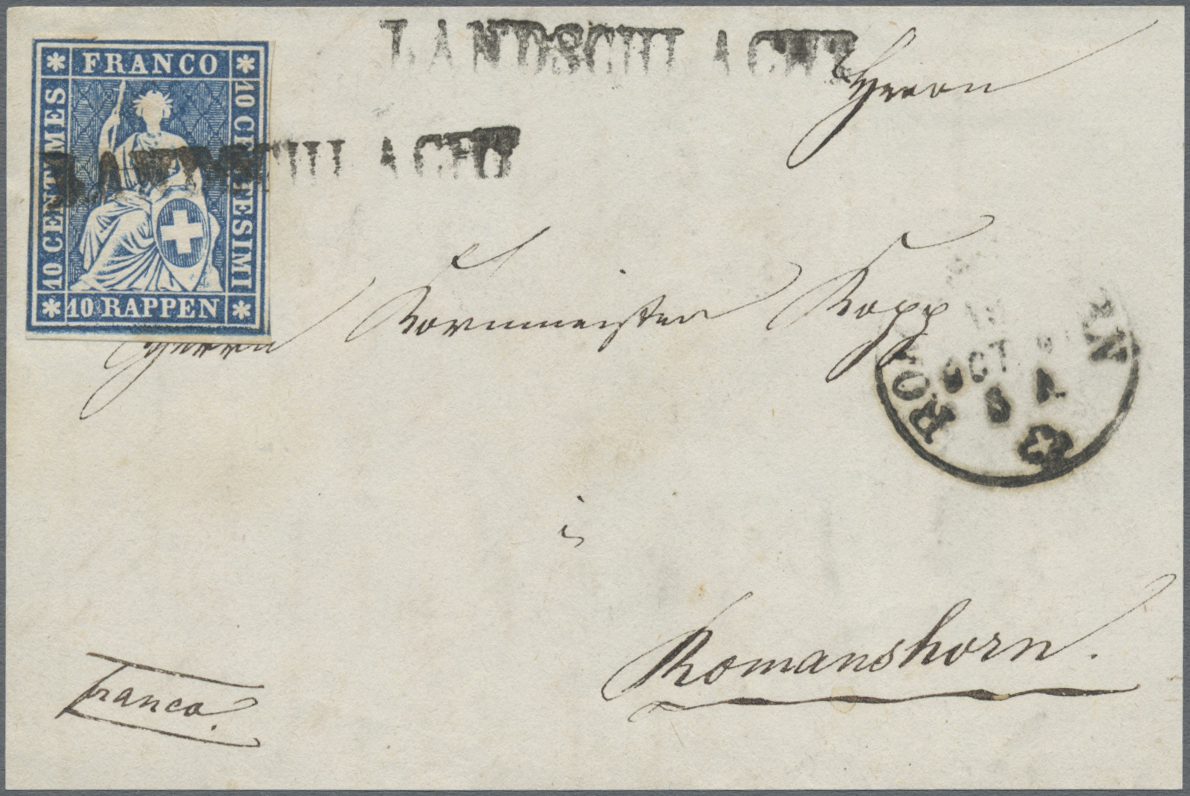 LANDSCHLACHT
FRANCO
10 CENTIMES
10 CENTESIMI
10 RAPPEN
LANDSCHLACHT
Herrn
Herrn Kornmeister Kopp
in
Romanshorn.
franco.
RO N
18
OCT
8 A